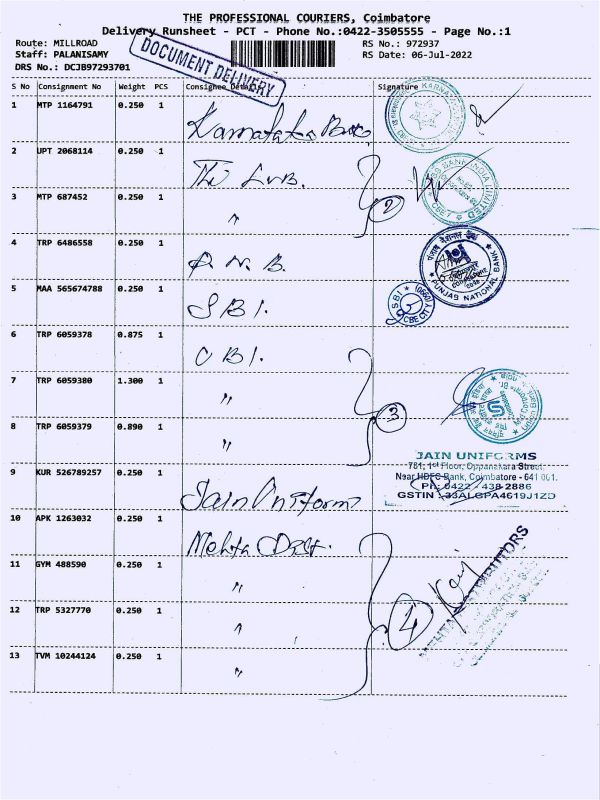 THE PROFESSIONAL COURIERS, Coimbatore
Delivery Runsheet - PCT - Phone No.:0422-3505555 - Page No.:1
Route: MILLROAD
RS No.: 972937
Staff: PALANISAMY
RS Date: 06-Jul-2022
DRS No.: DCJB97293701
DOCUMENT DELIVERY
S No Consignment No Weight PCS Consignee Details Signature
1 MTP 1164791 0.250 1 Karnataka Bank
2 UPT 2068114 0.250 1 The LVB.
3 MTP 687452 0.250 1 "
2
4 TRP 6486558 0.250 1 P N B.
PUNJAB NATIONAL BANK
5 MAA 565674788 0.250 1 SBI.
SBI
CBE CITY
6 TRP 6059378 0.875 1 CBI.
7 TRP 6059380 1.300 1 "
8 TRP 6059379 0.890 1 "
3
JAIN UNIFORMS
781, 1st Floor, Oppanakara Street,
Near HDFC Bank, Coimbatore - 641 001.
PH: 0422 - 438 2886
GSTIN : 33ALGPA4619J1ZD
9 KUR 526789257 0.250 1 Jain Uniforms
10 APK 1263032 0.250 1 Mehta Dist.
11 GYM 488590 0.250 1 "
12 TRP 5327770 0.250 1 "
13 TVM 10244124 0.250 1 "
4